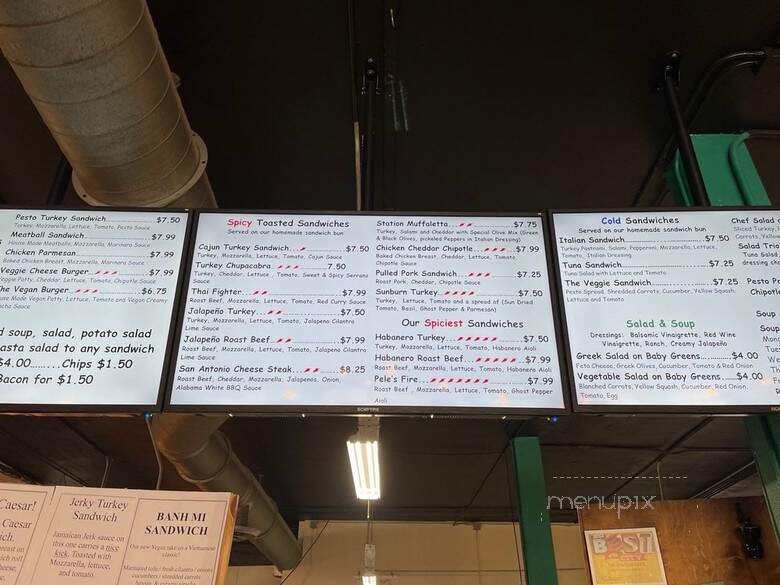 Pesto Turkey Sandwich $7.50
Turkey, Mozzarella, Lettuce, Tomato, Pesto Sauce
Meatball Sandwich $7.99
House Made Meatballs, Mozzarella, Marinara Sauce
Chicken Parmesan $7.99
Baked Chicken Breast, Mozzarella, Marinara Sauce
Veggie Cheese Burger $7.99
Veggie Patty, Cheddar, Lettuce, Tomato, Chipotle Sauce
The Vegan Burger $6.75
Made Vegan Patty, Lettuce, Tomato and Vegan Creamy
Sauce
soup, salad, potato salad
pasta salad to any sandwich
$4.00.........Chips $1.50
Bacon for $1.50
Spicy Toasted Sandwiches
Served on our homemade sandwich bun
Cajun Turkey Sandwich $7.50
Turkey, Mozzarella, Lettuce, Tomato, Cajun Sauce
Turkey Chupacabra 7.50
Turkey, Cheddar, Lettuce, Tomato, Sweet & Spicy Serrano
Sauce
Thai Fighter $7.99
Roast Beef, Mozzarella, Lettuce, Tomato, Red Curry Sauce
Jalapeño Turkey $7.50
Turkey, Mozzarella, Lettuce, Tomato, Jalapeno Cilantro
Lime Sauce
Jalapeño Roast Beef $7.99
Roast Beef, Mozzarella, Lettuce, Tomato, Jalapeno Cilantro
Lime Sauce
San Antonio Cheese Steak $8.25
Roast Beef, Cheddar, Mozzarella, Jalapenos, Onion,
Alabama White BBQ Sauce
Station Muffaletta $7.75
Turkey, Salami and Cheddar with Special Olive Mix (Green
& Black Olives, pickeled Peppers in Italian Dressing)
Chicken Cheddar Chipotle $7.99
Baked Chicken Breast, Cheddar, Lettuce, Tomato,
Chipotle Sauce
Pulled Pork Sandwich $7.25
Roast Pork, Cheddar, Chipotle Sauce
Sunburn Turkey $7.50
Turkey, Lettuce, Tomato and a spread of (Sun Dried
Tomato, Basil, Ghost Pepper & Parmesan)
Our Spiciest Sandwiches
Habanero Turkey $7.50
Turkey, Mozzarella, Lettuce, Tomato, Habanero Aioli
Habanero Roast Beef $7.99
Roast Beef, Mozzarella, Lettuce, Tomato, Habanero Aioli
Pele's Fire $7.99
Roast Beef, Mozzarella, Lettuce, Tomato, Ghost Pepper
Aioli
SCEPTRE
Cold Sandwiches
Served on our homemade sandwich bun
Italian Sandwich $7.50
Turkey Pastrami, Salami, Pepperoni, Mozzarella, Lettuce,
Tomato, Italian Dressing
Tuna Sandwich $7.25
Tuna Salad with Lettuce and Tomato
The Veggie Sandwich $7.25
Pesto Spread, Shredded Carrots, Cucumber, Yellow Squash,
Lettuce and Tomato
Salad & Soup
Dressings: Balsamic Vinaigrette, Red Wine
Vinaigrette, Ranch, Creamy Jalapeño
Greek Salad on Baby Greens $4.00
Feta Cheese, Greek Olives, Cucumber, Tomato & Red Onion
Vegetable Salad on Baby Greens $4.00
Blanched Carrots, Yellow Squash, Cucumber, Red Onion,
Tomato, Egg
Chef Salad
Sliced Turkey,
Carrots, Yellow
Salad Trio
Tuna Salad,
dressing
Pesto
Chipotle
Soup
Caesar!
Caesar
Jerky Turkey
Sandwich
Jamaican Jerk sauce on
this one carries a nice
kick. Toasted with
Mozzarella, lettuce,
and tomato.
BANH MI
SANDWICH
Our new Vegan take on a Vietnamese
classic!
Marinated tofu / fresh cilantro / onion
cucumbers / shredded carrots
menupix
BEST